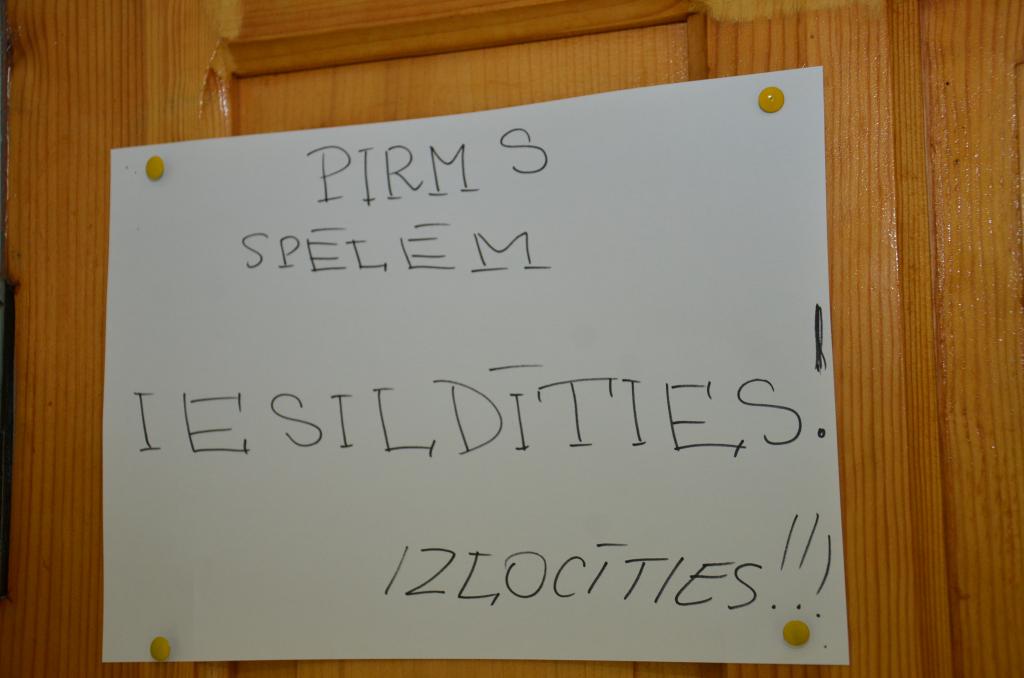 PIRMS
SPĒLĒM
IESILDĪTIES!
IZĻOCĪTIES!!!